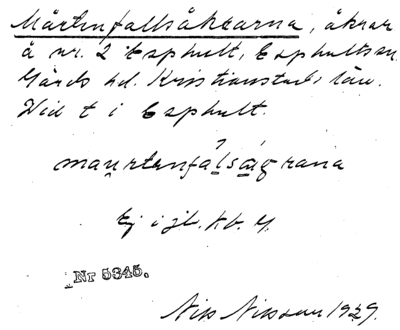 Mårtenfallsåkrarna, åkrar
å nr. 2 Esphult, Esphults sn.
Gärds hd. Kristianstads län.
Vid t i Esphult.
maurtenfálságrana
Ej i jb. kb. 4.
Nr 5345.
Nils Nilsson 1929.